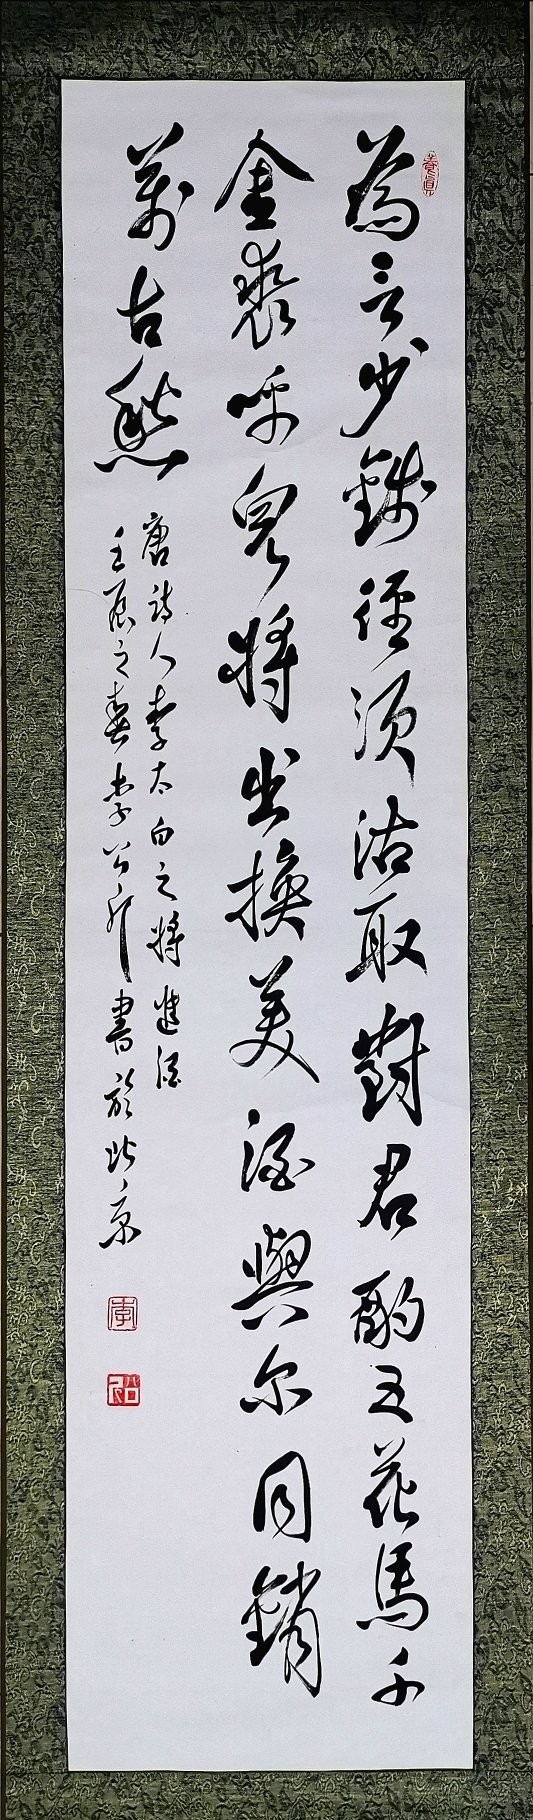 為言少錢徑須沽取對君酌五花馬千
金裘呼兒將出換美酒與尔同銷
萬古愁
唐詩人李太白之將進酒
壬辰之春李公升書於北京